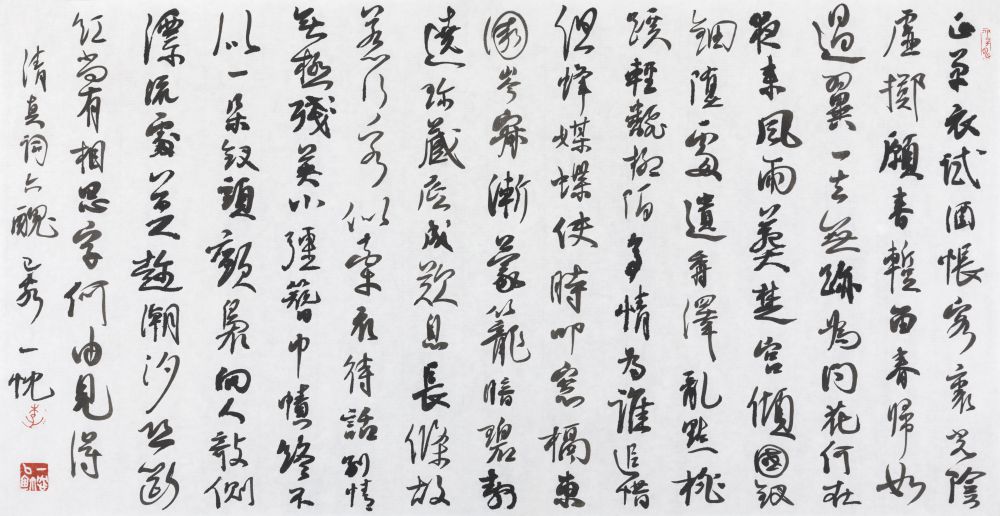 正單衣試酒悵客裏光陰
虛擲願春暫留春歸如
過翼一去無跡為問花何在
夜來風雨葬楚宮傾國釵
鈿墮處遺香澤亂點桃
蹊輕翻柳陌多情為誰追惜
但蜂媒蝶使時叩窗槅東
園岑寂漸蒙籠暗碧靜
遶珍藏底成歎息長條故
惹行客似牽衣待話別情
無極殘英小彊簪巾幘終不
似一朵釵頭顫裊向人欹側
漂流處莫趁潮汐恐斷
紅尚有相思字何由見得
清真詞六醜 己亥一忱
李